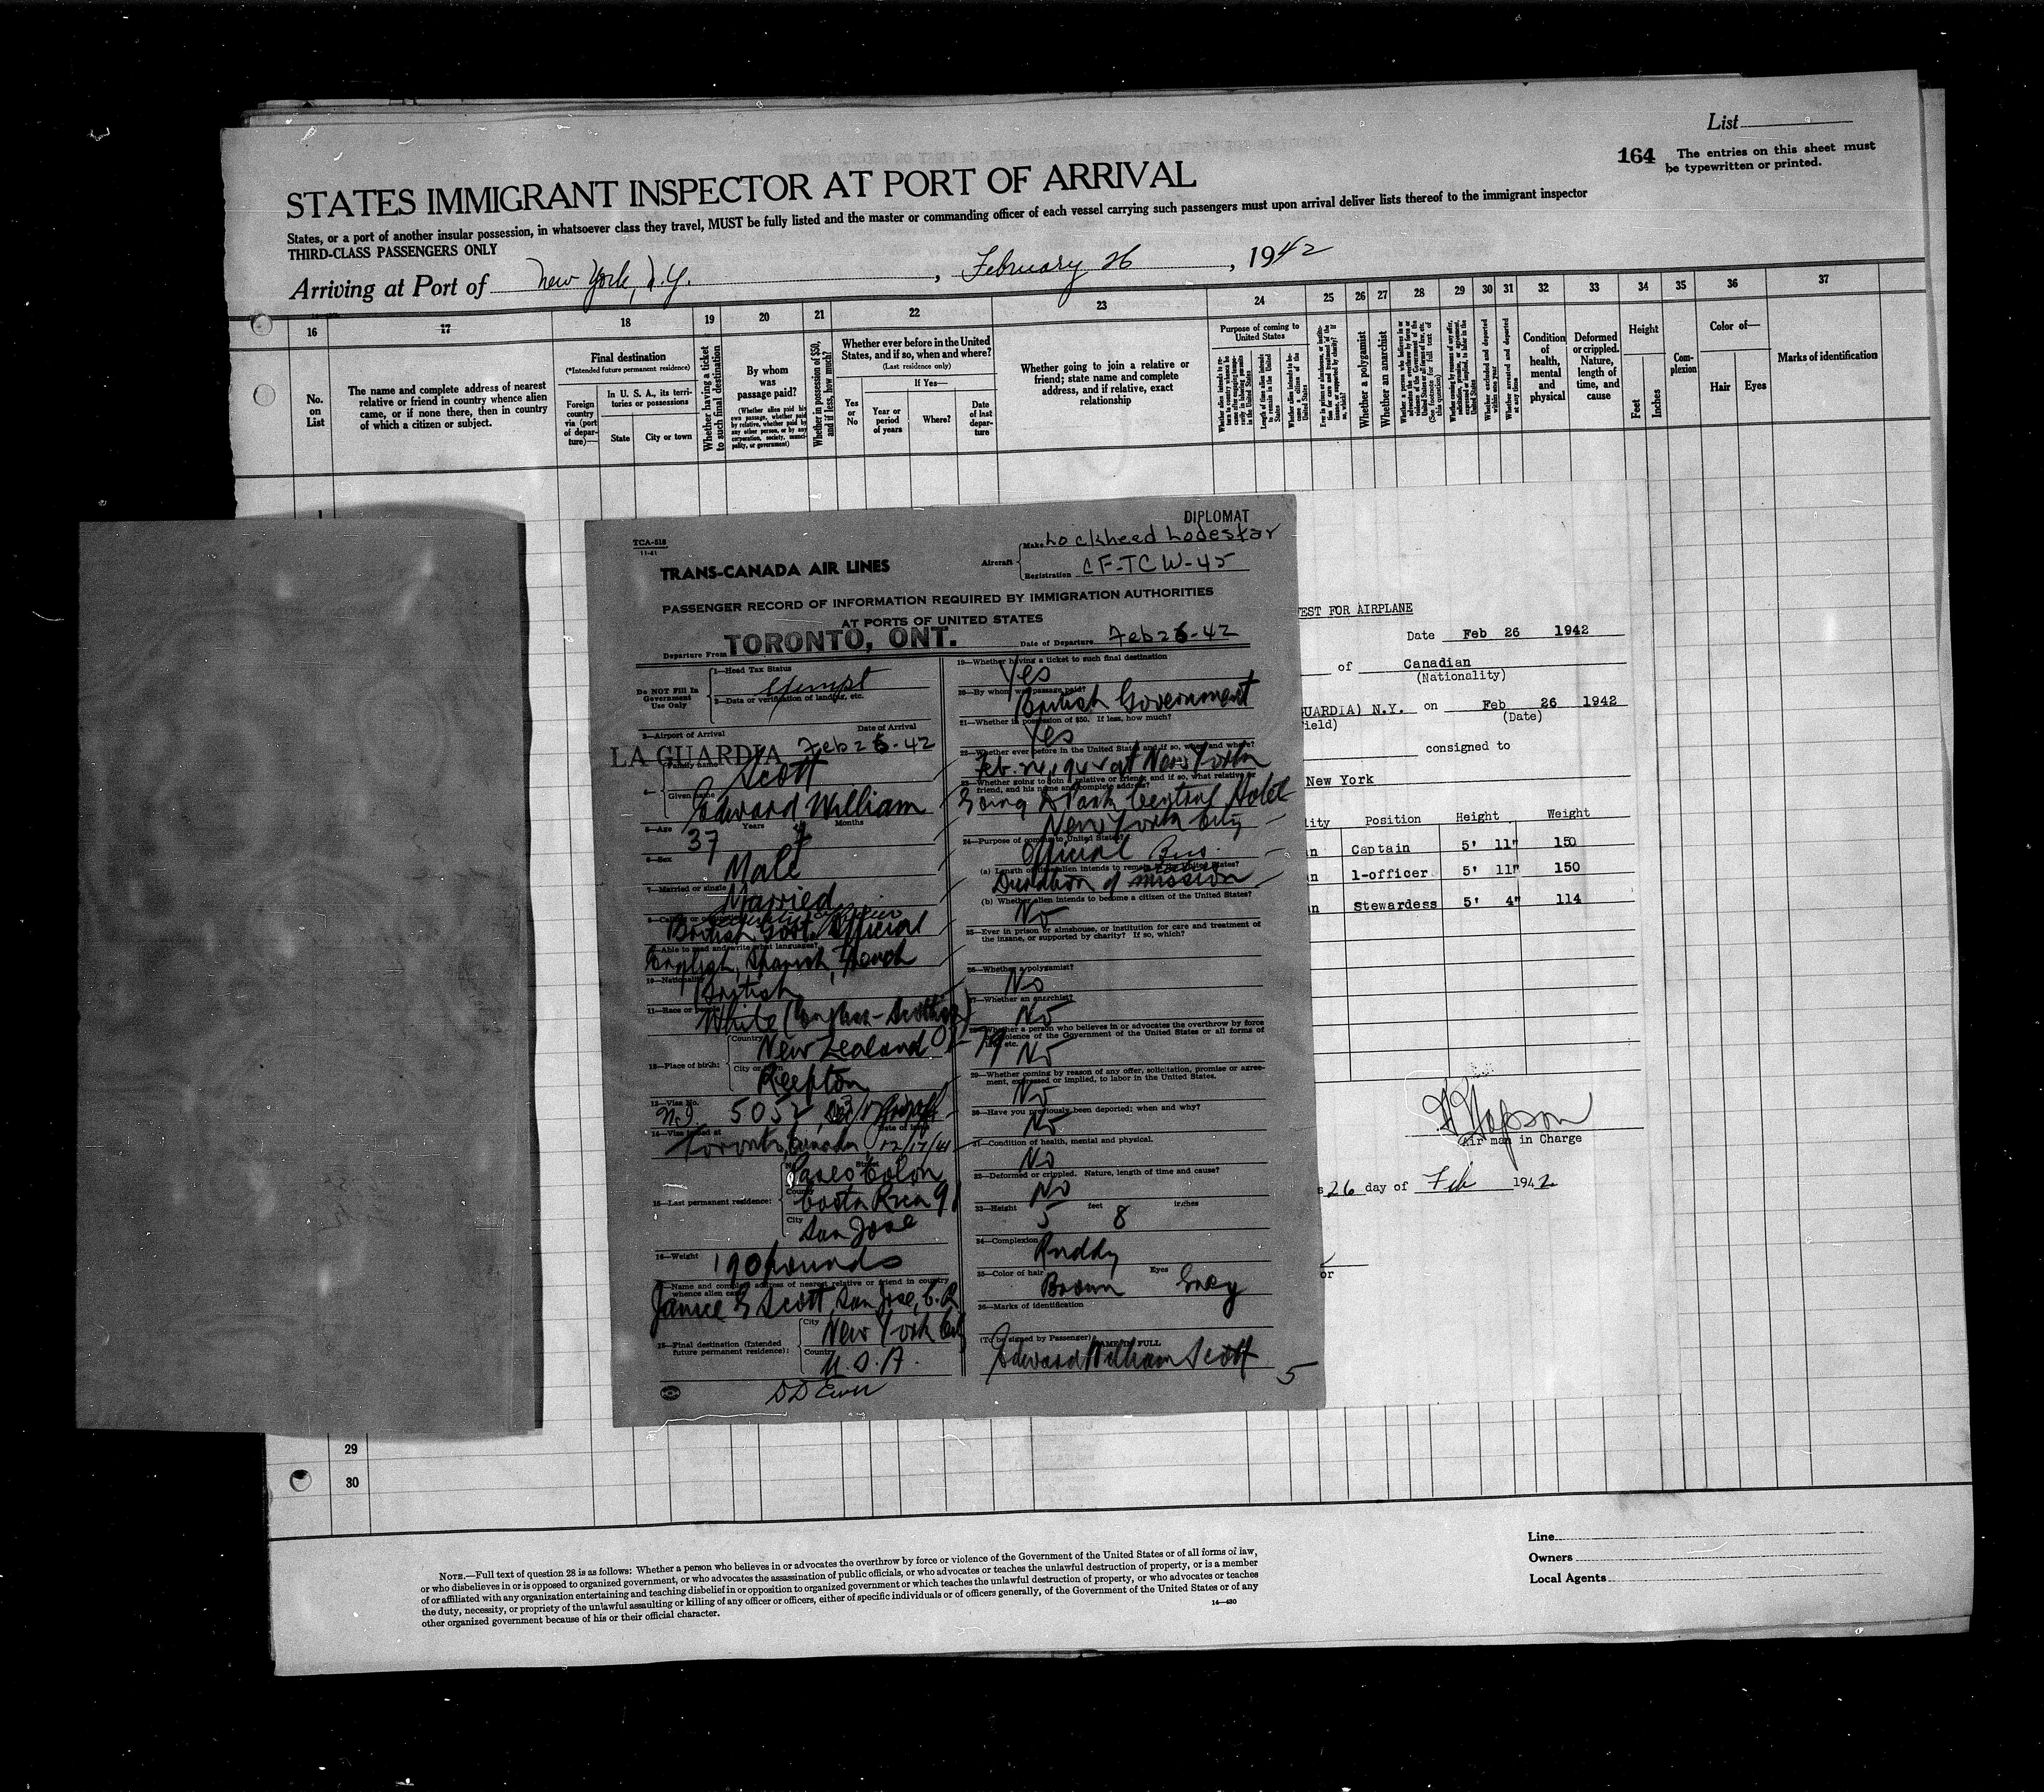 List
164 The entries on this sheet must
be typewritten or printed.
STATES IMMIGRANT INSPECTOR AT PORT OF ARRIVAL
States, or a port of another insular possession, in whatsoever class they travel, MUST be fully listed and the master or commanding officer of each vessel carrying such passengers must upon arrival deliver lists thereof to the immigrant inspector
THIRD-CLASS PASSENGERS ONLY
Arriving at Port of New York, N.Y., February 26, 1942
16 17 18 19 20 21 22 23 24 25 26 27 28 29 30 31 32 33 34 35 36 37
No.
on
List
The name and complete address of nearest
relative or friend in country whence alien
came, or if none there, then in country
of which a citizen or subject.
Final destination
(*Intended future permanent residence)
Foreign
country
via (port
of depar-
ture)—
In U. S. A., its terri-
tories or possessions
State
City or town
Whether having a ticket
to such final destination
By whom
was
passage paid?
(Whether alien paid his
own passage, whether paid
by relative, whether paid by
any other person, or by any
corporation, society, munici-
pality, or government)
Whether in possession of $50,
and if less, how much?
Whether ever before in the United
States, and if so, when and where?
(Last residence only)
Yes
or
No
If Yes—
Year or
period
of years
Where?
Date
of last
depar-
ture
Whether going to join a relative or
friend; state name and complete
address, and if relative, exact
relationship
Purpose of coming to
United States
Length of time alien intends
to remain in the United
States
Whether alien intends to be-
come a citizen of the
United States
Whether a polygamist
Whether an anarchist
Condition
of
health,
mental
and
physical
Deformed
or crippled.
Nature,
length of
time, and
cause
Height
Feet
Inches
Com-
plexion
Color of—
Hair
Eyes
Marks of identification
DIPLOMAT
TCA-518
11-41
TRANS-CANADA AIR LINES
Aircraft
Make Lockheed Lodestar
Registration CF-TCW-45
PASSENGER RECORD OF INFORMATION REQUIRED BY IMMIGRATION AUTHORITIES
AT PORTS OF UNITED STATES
Departure From TORONTO, ONT.
Date of Departure Feb 26-42
Do NOT Fill In
Government
Use Only
1—Head Tax Status
exempt
2—Data or verification of landing, etc.
3—Airport of Arrival
Date of Arrival
LA GUARDIA Feb 26-42
4—
Family name Scott
Given name Edward William
5—Age 37 Years Months
6—Sex Male
7—Married or single Married
British Govt. Official
9—Able to read and write what languages?
English, Spanish, French
10—Nationality British
11—Race or people
White
12—Place of birth:
Country New Zealand
City or town Reefton
13—Visa No. 5052
14—Visa issued at
Date of issue
Toronto, Canada 12/17/41
15—Last permanent residence:
Street Paseo Colon
Country Costa Rica
City San Jose
16—Weight 190 pounds
17—Name and complete address of nearest relative or friend in country
whence alien came
Janice G Scott, San Jose, C.R.
18—Final destination (Intended
future permanent residence):
City New York City
Country U.S.A.
19—Whether having a ticket to such final destination
Yes
20—By whom was passage paid?
British Government
21—Whether in possession of $50. If less, how much?
Yes
22—Whether ever before in the United States and if so, when and where?
at New York
23—Whether going to join a relative or friend; and if so, what relative or
friend, and his name and complete address?
Going to Park Central Hotel
New York City
24—Purpose of coming to United States?
Official Bus.
(a) Length of time alien intends to remain in the United States?
Duration of mission
(b) Whether alien intends to become a citizen of the United States?
No
25—Ever in prison or almshouse, or institution for care and treatment of
the insane, or supported by charity? If so, which?
26—Whether a polygamist?
No
27—Whether an anarchist?
No
28—Whether a person who believes in or advocates the overthrow by force
or violence of the Government of the United States or all forms of
law, etc.
No
29—Whether coming by reason of any offer, solicitation, promise or agree-
ment, expressed or implied, to labor in the United States.
No
30—Have you previously been deported; when and why?
No
31—Condition of health, mental and physical.
No
32—Deformed or crippled. Nature, length of time and cause?
No
33—Height 5 feet 8 inches
34—Complexion Ruddy
35—Color of hair Brown Eyes Grey
36—Marks of identification
(To be signed by Passenger) NAME IN FULL
Edward William Scott
5
EST FOR AIRPLANE
Date Feb 26 1942
of Canadian
(Nationality)
GUARDIA) N.Y. on Feb 26 1942
ield) (Date)
consigned to
New York
lity Position Height Weight
n Captain 5' 11" 150
n 1-officer 5' 11" 150
n Stewardess 5' 4" 114
Air man in Charge
s 26 day of Feb 1942
or
29
30
Line
Owners
Local Agents
NOTE.—Full text of question 28 is as follows: Whether a person who believes in or advocates the overthrow by force or violence of the Government of the United States or of all forms of law,
or who disbelieves in or is opposed to organized government, or who advocates the assassination of public officials, or who advocates or teaches the unlawful destruction of property, or is a member
of or affiliated with any organization entertaining and teaching disbelief in or opposition to organized government or which teaches the unlawful destruction of property, or who advocates or teaches
the duty, necessity, or propriety of the unlawful assaulting or killing of any officer or officers, either of specific individuals or of officers generally, of the Government of the United States or of any
other organized government because of his or their official character.
14—430